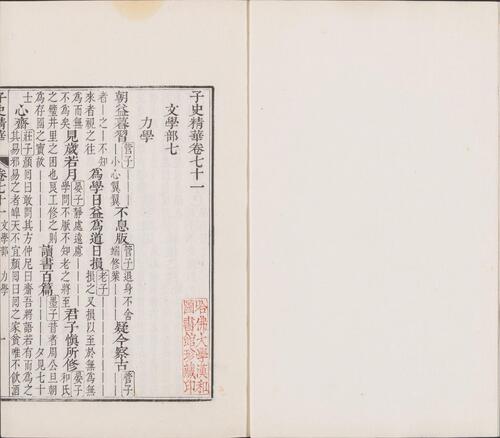 子史精華卷七十一
文學部七
力學
朝益暮習 管子————小心翼翼 不息版 管子退身不舍端修業——— 疑今察古 管子————
者—之—不知來者視之往 爲學日益爲道日損 老子————————損之又損以至於無爲無
爲而無不爲矣 見歲若月 晏子靜處遠慮————學問不厭不知老之將至 君子愼所修 晏子和氏
之璧井里之困也良工修之則爲存國之寶故————— 讀書百篇 墨子昔者周公旦朝————夕見七十
士 心齋 莊子顏回曰敢問其方仲尼曰齋吾將語若有而爲之其易邪易之者皞天不宜顏回曰回之家貧唯不飲酒
子史精華 卷七十一 文學部 力學 一
哈佛大學漢和圖書館珍藏印